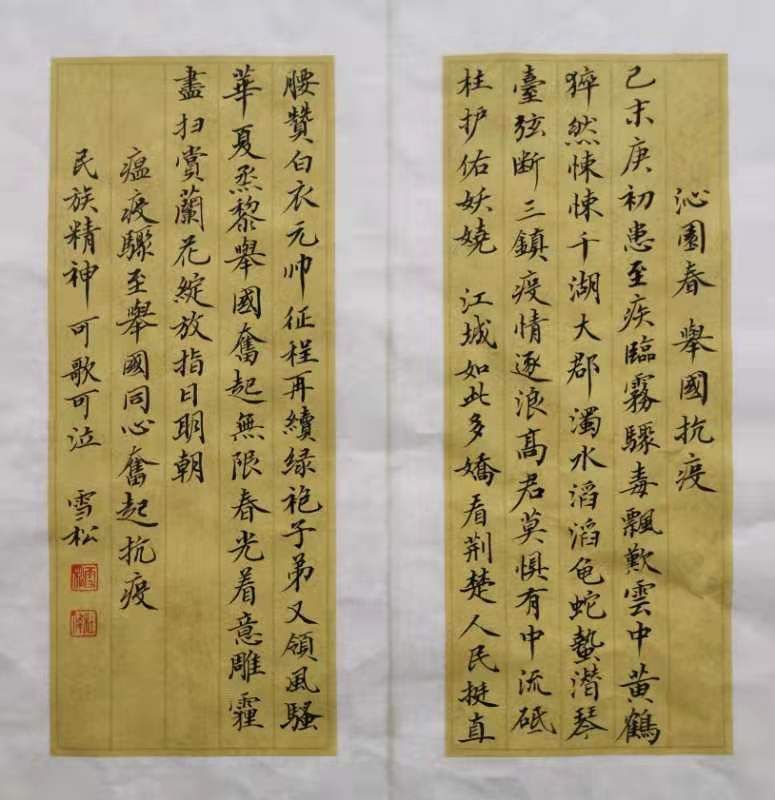 沁園春 舉國抗疫
己末庚初患至疾臨霧驟毒飄歎雲中黄鶴
猝然悚悚千湖大郡濁水滔滔龟蛇蟄潜琴
臺弦断三鎮疫情逐浪髙君莫惧有中流砥
柱护佑妖嬈 江城如此多嬌看荆楚人民挺直
腰贊白衣元帅征程再續绿袍子弟又領風騷
華夏烝黎舉國奮起無限春光着意雕霾
盡扫賞蘭花綻放指日明朝
瘟疫驟至舉國同心奮起抗疫
民族精神可歌可泣 雪松